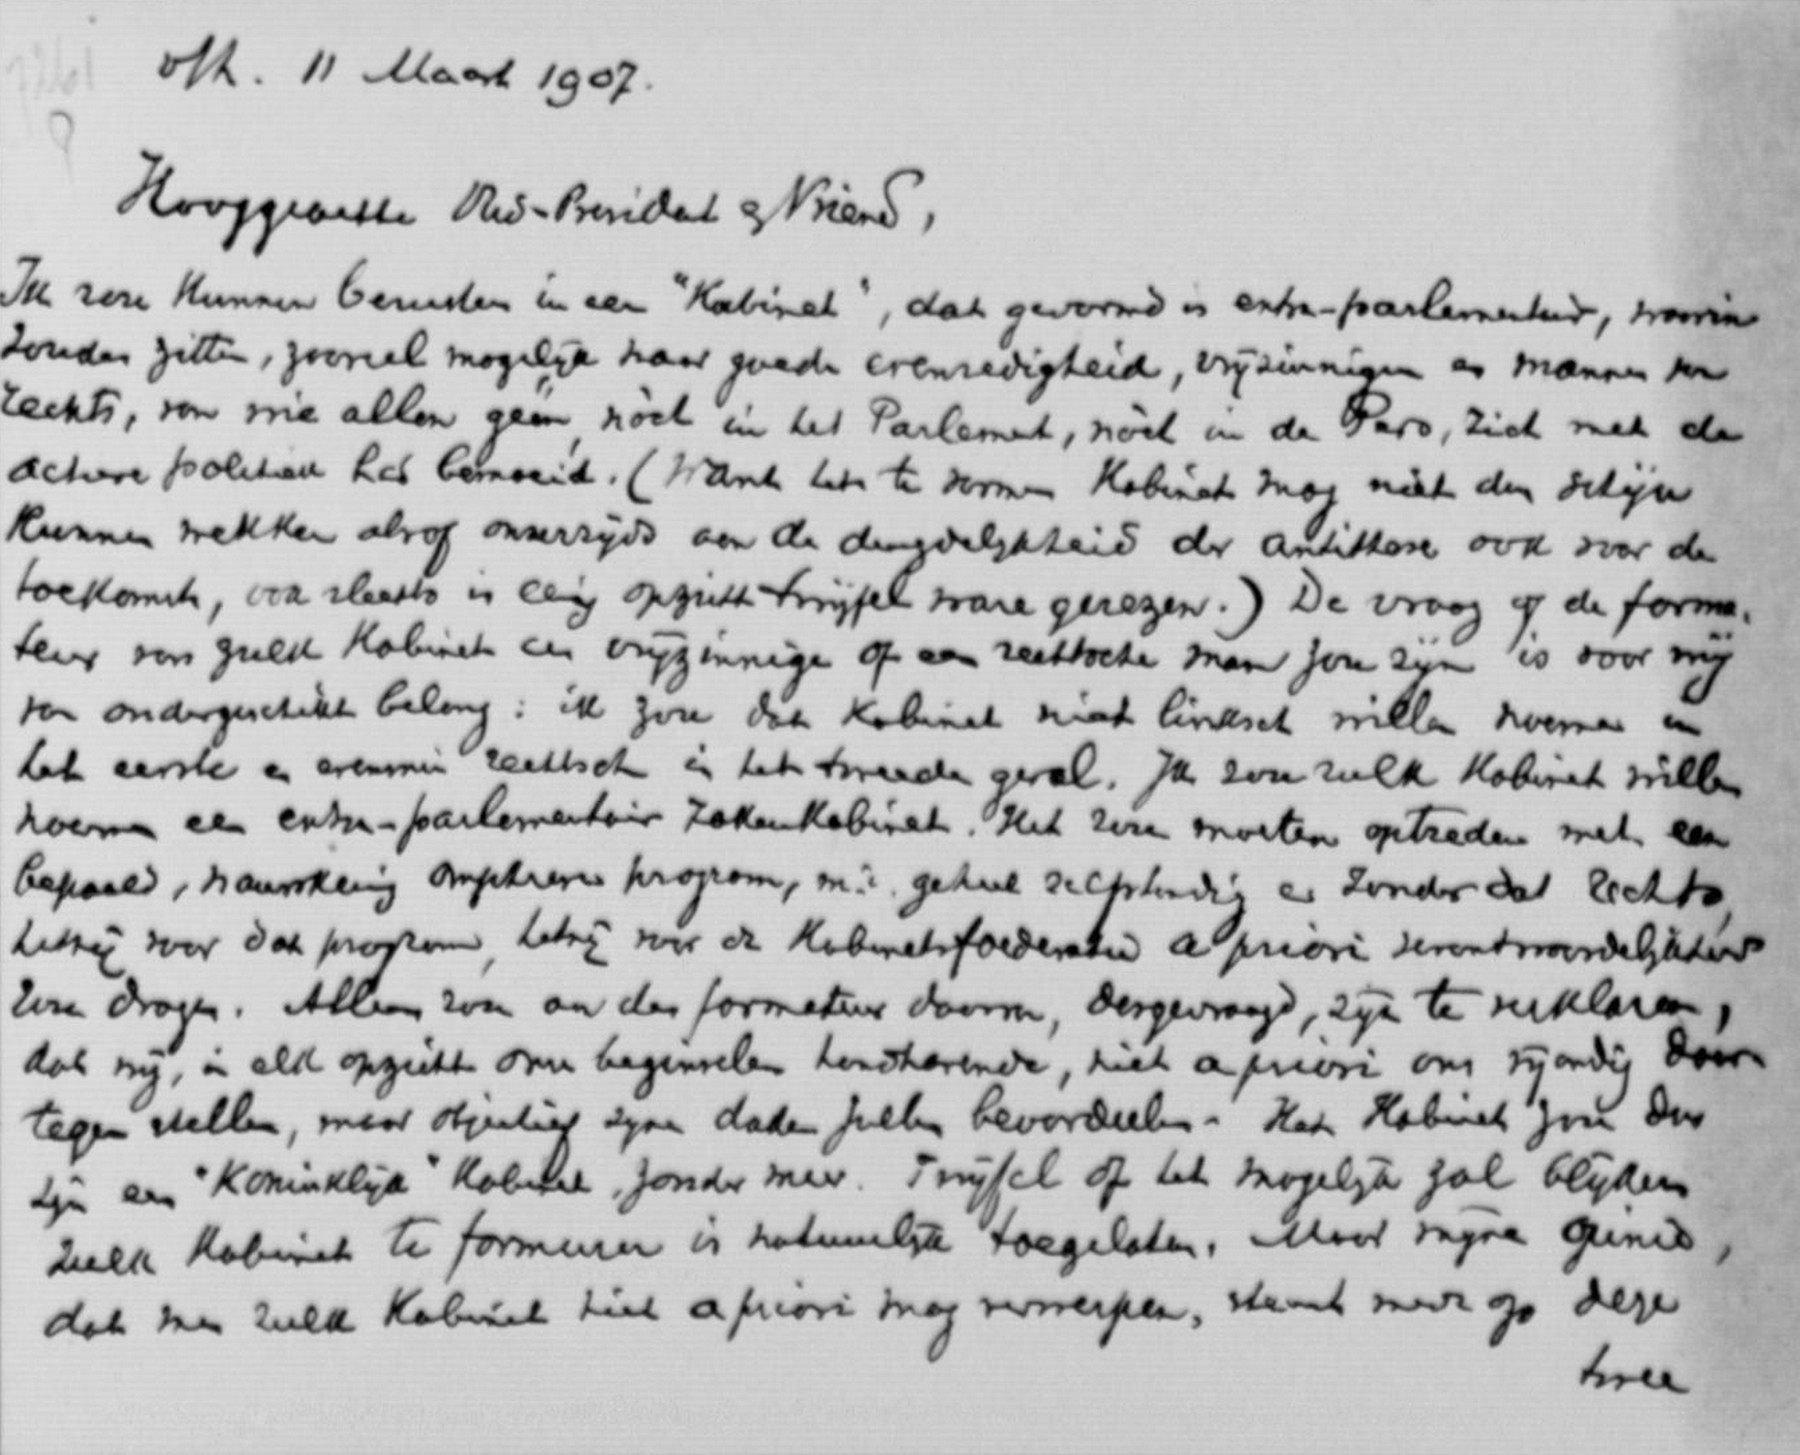 11 Maart 1907.
Hooggeachte Vice-President & Vriend,
Ik zou kunnen berusten in een "Kabinet", dat gevormd is extra-parlementair, waarin
zouden zitten, zooveel mogelijk naar goede evenredigheid, vrijzinnigen en mannen van
rechts, van wie allen geen, nòch in het Parlement, nòch in de Pers, zich met de
actieve politiek had bemoeid. (Want het te vormen Kabinet mag niet den schijn
kunnen wekken alsof onzerzijds aan de deugdelijkheid der antithese ook voor de
toekomst, ook slechts in eenig opzicht twijfel ware gerezen.) De vraag of de forma-
teur van zulk Kabinet een vrijzinnige of een rechtsche man zou zijn is voor mij
van ondergeschikt belang: ik zou dat Kabinet niet linksch willen noemen in
het eerste en evenmin rechtsch in het tweede geval. Ik zou zulk Kabinet willen
noemen een extra-parlementair Zakenkabinet. Het zou moeten optreden met een
bepaald, nauwkeurig omschreven program, m.i. geheel zelfstandig en zonder dat rechts,
hetzij voor dat program, hetzij voor de Kabinetsfoederatie a priori verantwoordelijkheid
zou dragen. Alleen zou aan den formateur daarvan, desgevraagd, zijn te verklaren,
dat wij, in elk opzicht onze beginselen handhavende, niet a priori ons vijandig daar-
tegen stellen, maar objectief zijne daden zullen beoordeelen. Het Kabinet zou dus
zijn een "Koninklijk" Kabinet, zonder meer. Twijfel of het mogelijk zal blijken
zulk Kabinet te formeeren is natuurlijk toegelaten. Maar mijne opinie,
dat men zulk Kabinet niet a priori mag verwerpen, steunt mede op deze
twee